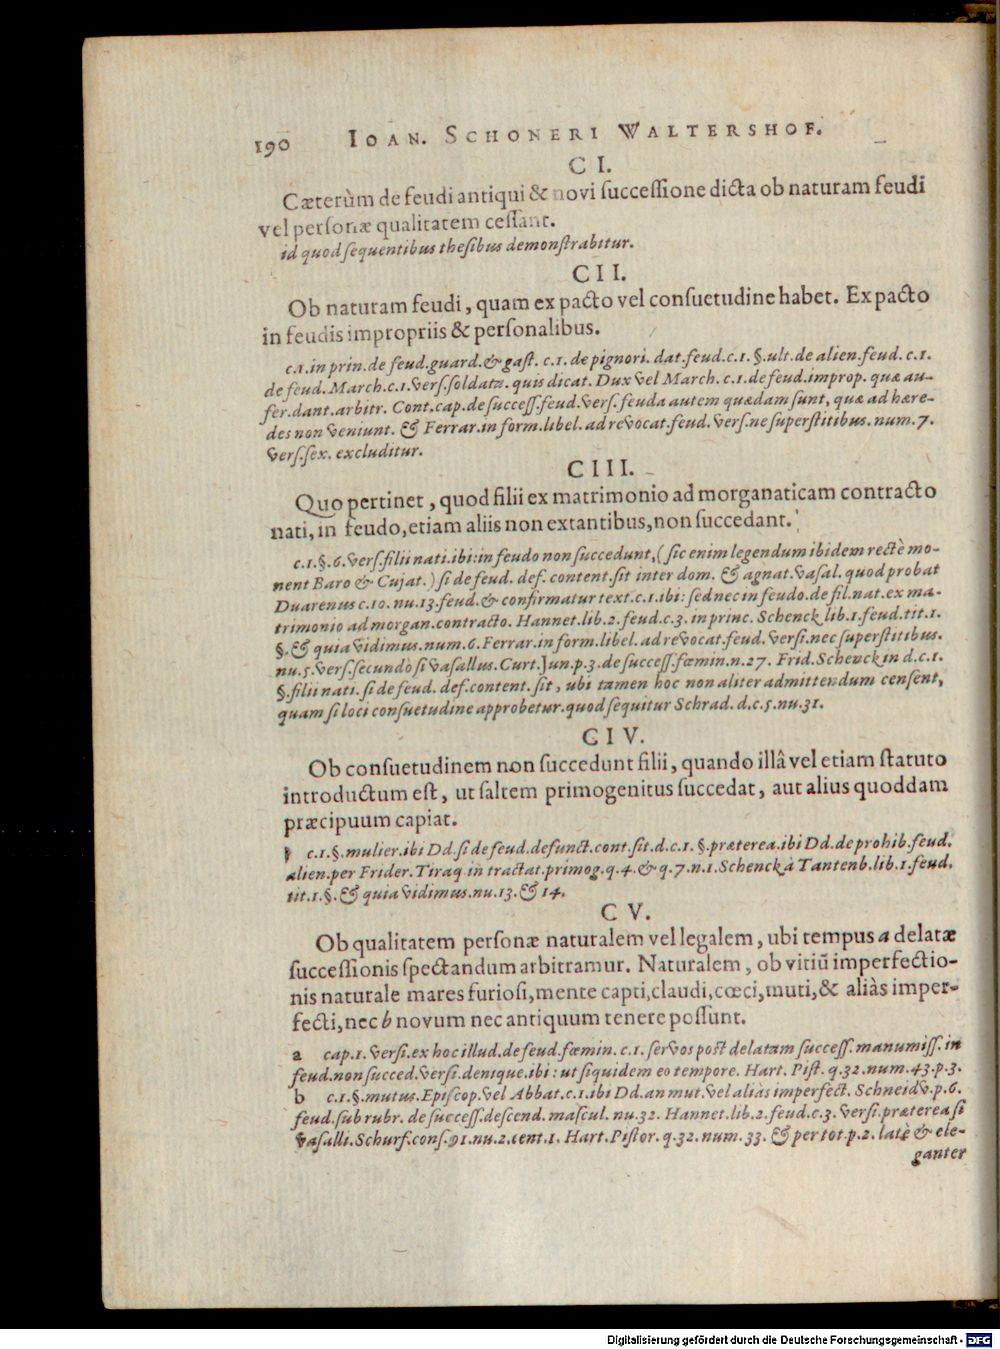 190 IOAN. SCHONERI WALTERSHOF.
CI.
Cæterùm de feudi antiqui & novi successione dicta ob naturam feudi
vel personæ qualitatem cessant.
id quod sequentibus thesibus demonstrabitur.
CII.
Ob naturam feudi, quam ex pacto vel consuetudine habet. Ex pacto
in feudis impropriis & personalibus.
c.1.in prin.de feud.guard.& gast. c.1. de pignori. dat.feud.c.1. §.ult.de alien.feud. c.1.
de feud. March.c.1.vers.soldata. quis dicat. Dux vel March. c.1.de feud.improp. quæ au-
fer.dant.arbitr. Cont.cap.de success.feud.vers.feuda autem quædam sunt, quæ ad hære-
des non veniunt. & Ferrar.in form.libel. ad revocat.feud. vers.ne superstitibus. num.7.
vers.sex. excluditur.
CIII.
Quo pertinet, quod filii ex matrimonio ad morganaticam contracto
nati, in feudo, etiam aliis non extantibus, non succedant.
c.1.§.6.vers.filii nati.ibi:in feudo non succedunt,(sic enim legendum ibidem rectè mo-
nent Baro & Cujat.) si de feud. def. content.sit inter dom. & agnat.vasal. quod probat
Duarenus c.10. nu.13.feud.& confirmatur text.c.1.ibi: sed nec in feudo.de fil.nat.ex ma-
trimonio ad morgan.contracto. Hannet.lib.2.feud.c.3. in princ. Schenck lib.1.feud.tit.1.
§. & quia vidimus.num.6.Ferrar.in form.libel. ad revocat.feud. versi.nec superstitibus.
nu.5.vers.secundò si vasallus.Curt.Jun.p.3.de success.fœmin.n.27. Frid.Schenck in d.c.1.
§.filii nati. si de feud. def.content. sit, ubi tamen hoc non aliter admittendum censent,
quam si loci consuetudine approbetur.quod sequitur Schrad. d.c.5.nu.31.
CIV.
Ob consuetudinem non succedunt filii, quando illâ vel etiam statuto
introductum est, ut saltem primogenitus succedat, aut alius quoddam
præcipuum capiat.
c.1.§.mulier.ibi Dd.si de feud.defunct.cont.sit.d.c.1. §.præterea.ibi Dd.de prohib.feud.
alien.per Frider. Tiraq. in tractat.primog.q.4.& q.7.n.1.Schenck à Tantenb.lib.1.feud.
tit.1.§.& quia vidimus.nu.13.& 14.
CV.
Ob qualitatem personæ naturalem vel legalem, ubi tempus a delatæ
successionis spectandum arbitramur. Naturalem, ob vitiū imperfectio-
nis naturale mares furiosi, mente capti, claudi, cœci, muti, & aliàs imper-
fecti, nec b novum nec antiquum tenere possunt.
a cap.1. versi.ex hoc illud.de feud.fœmin. c.1. servos post delatam success. manumiss. in
feud.non succed.versi.denique.ibi : ut siquidem eo tempore. Hart. Pist. q.32.num.43.p.3.
b c.1.§.mutus.Episcop.vel Abbat.c.1.ibi Dd.an mut.vel aliàs imperfect. Schneidv.p.6.
feud.sub rubr. de success.descend. mascul. nu.32. Hannet.lib.2.feud.c.3. versi.præterea si
vasalli.Schurf.cons.91.nu.2.cent.1. Hart.Pistor. q.32. num.33. & per tot.p.2. latè & ele-
ganter
Digitalisierung gefördert durch die Deutsche Forschungsgemeinschaft - DFG